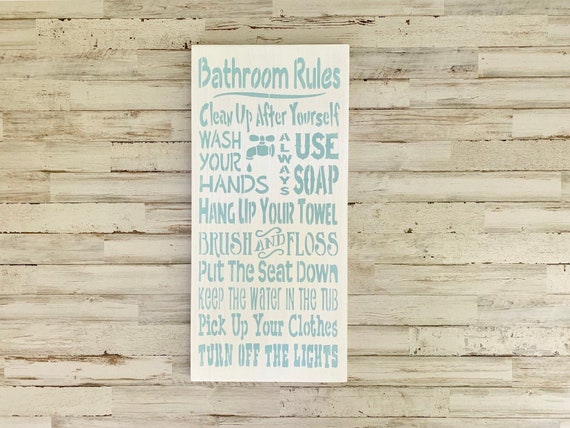 Bathroom Rules
Clean Up After Yourself
WASH YOUR HANDS
ALWAYS
USE SOAP
HANG UP YOUR TOWEL
BRUSH AND FLOSS
PUT THE SEAT DOWN
KEEP THE WATER IN THE TUB
Pick Up Your Clothes
TURN OFF THE LIGHTS